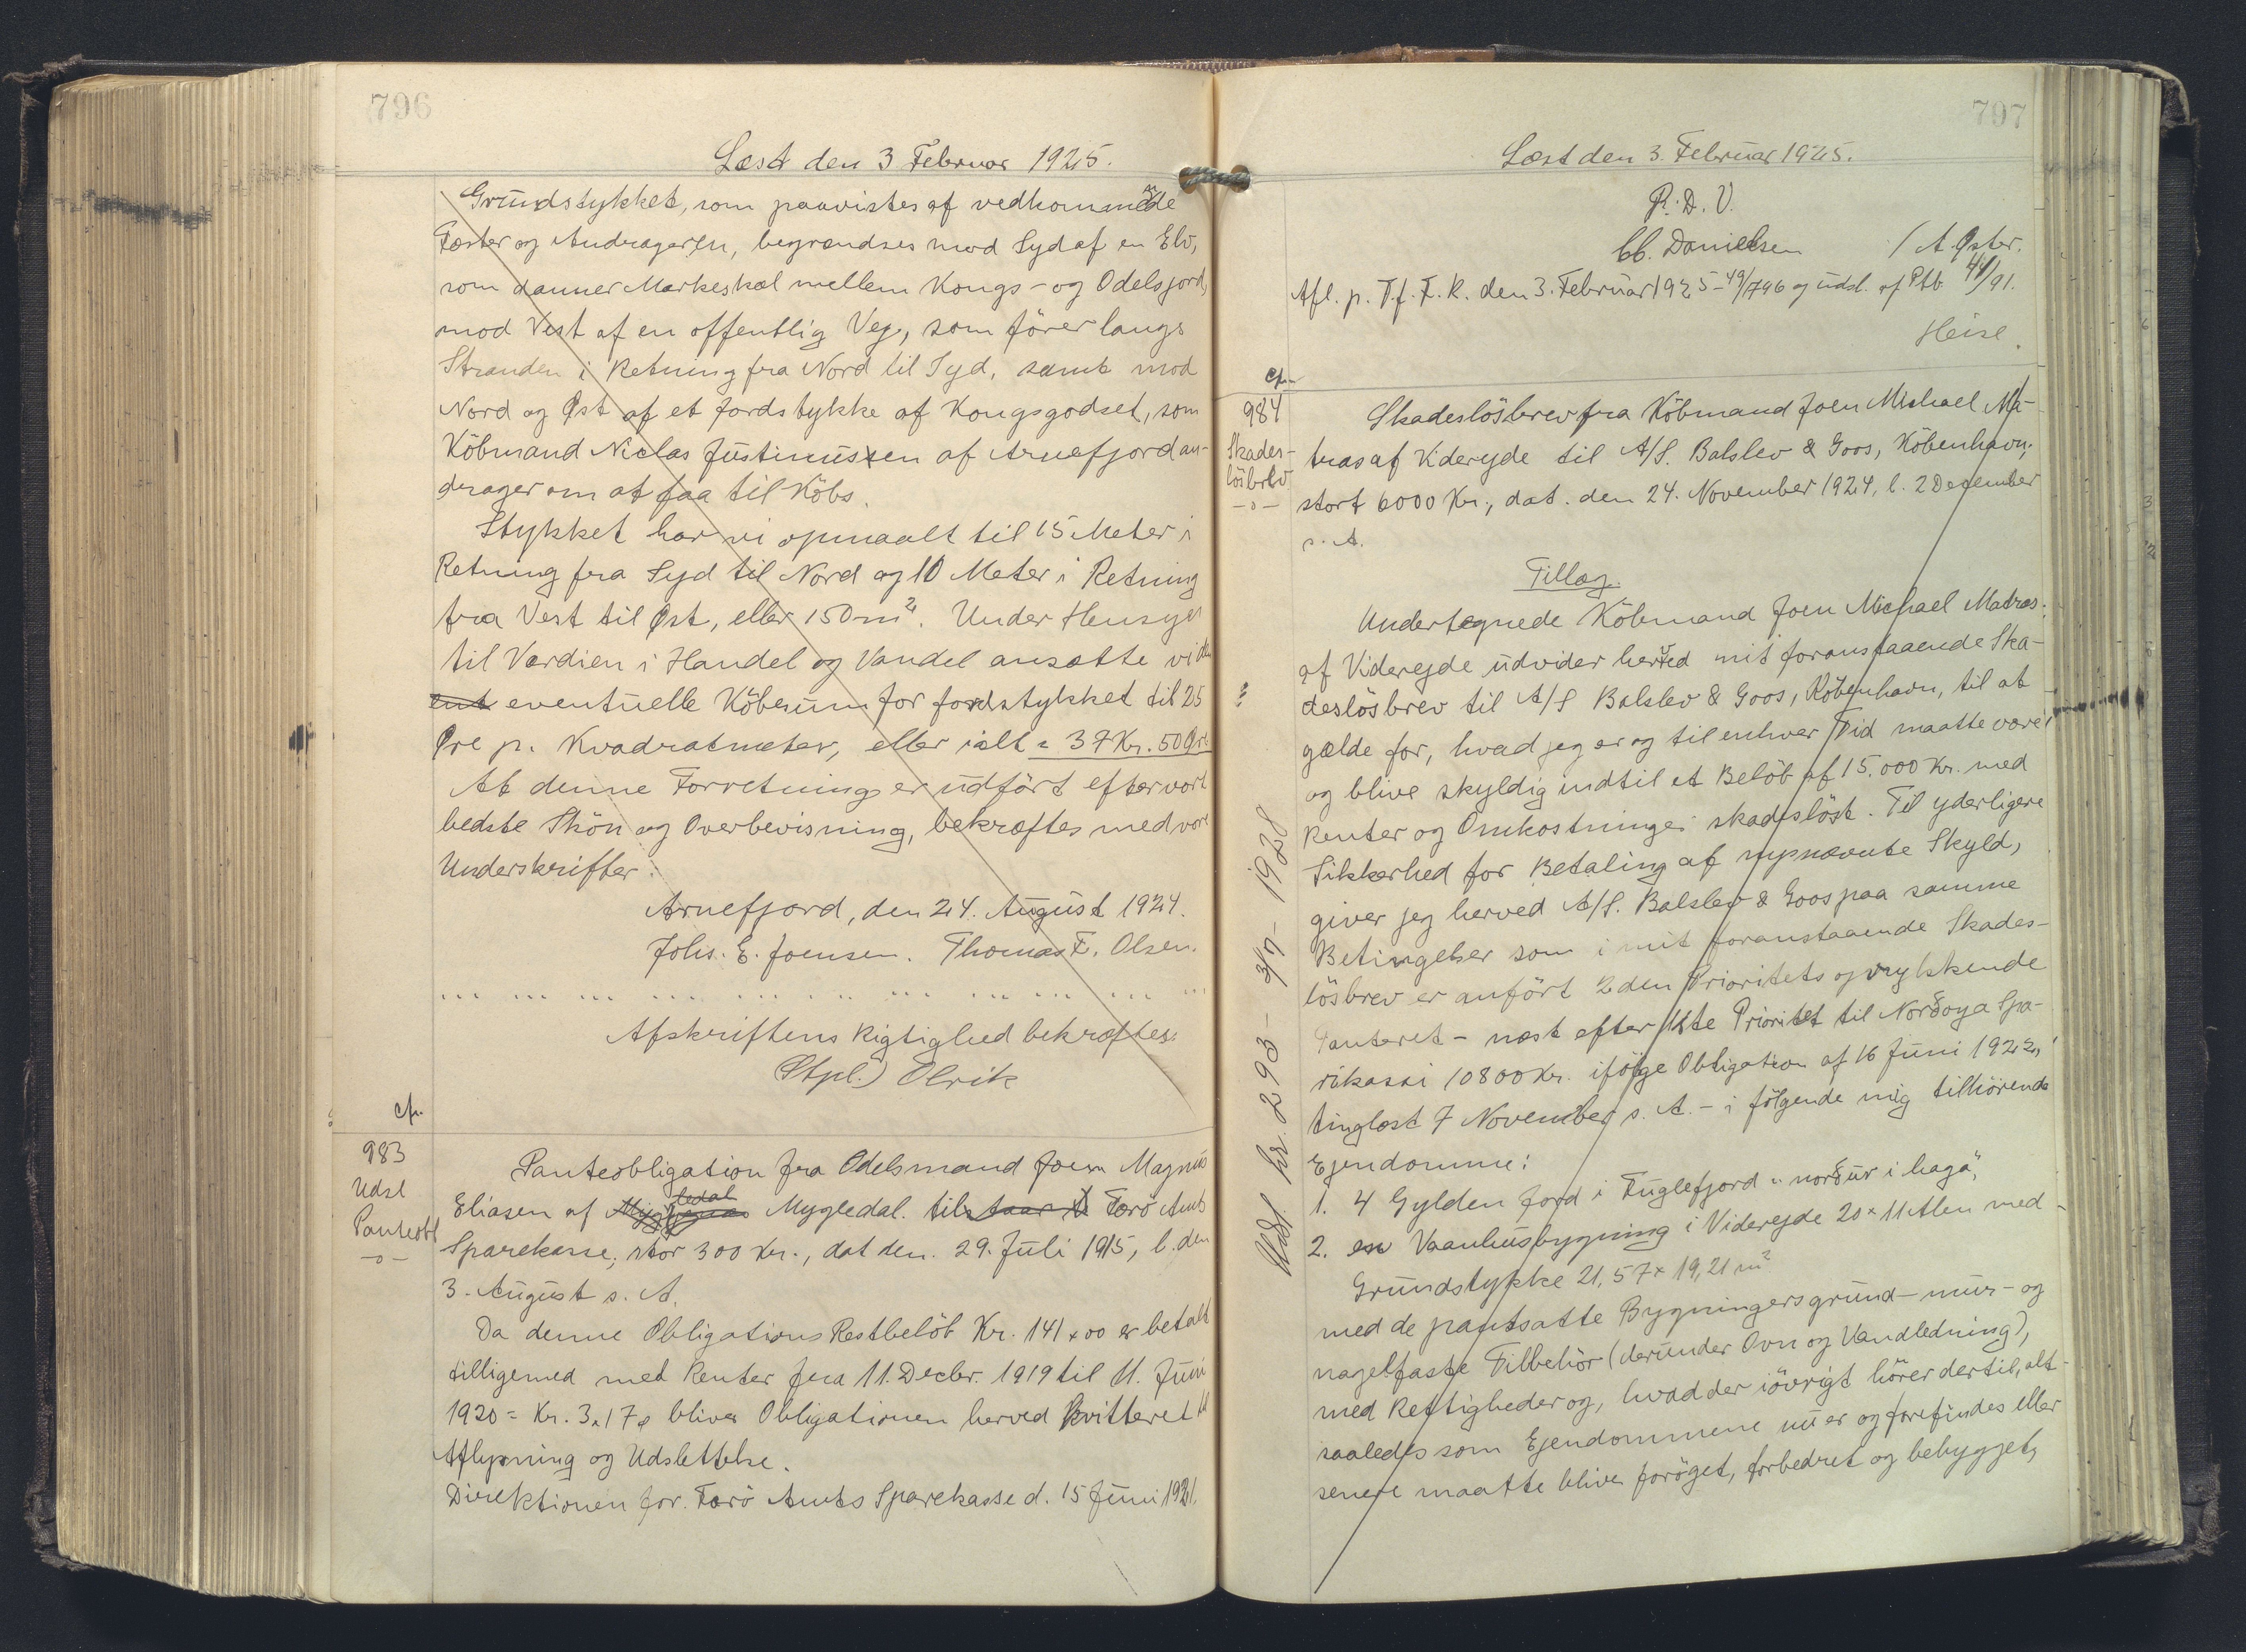 796
Læst den 3 Februar 1925.
Grundstykket, som paavistes af vedkommende
Fæster og Andrageren, begrændses mod Syd af en Elv,
som danner Markeskæl mellem Kongs- og Odelsjord,
mod Vest af en offentlig Vej, som förer langs
Stranden i Retning fra Nord til Syd, samt mod
Nord og Øst af et Jordstykke af Kongsgodset, som
Köbmand Niclas Justinussen af Arnefjord an-
drager om at faa til Köbs.
Stykket har vi opmaalt til 15 Meter i
Retning fra Syd til Nord og 10 Meter i Retning
fra Vest til Øst, eller 150 m². Under Hensyn
til Værdien i Handel og Vandel ansætte vi den
eventuelle Köbesum for Jordstykket til 25
Øre p. Kvadratmeter, eller ialt = 37 Kr. 50 Øre
At denne Forretning er udfört efter vort
bedste Skön og Overbevisning, bekræftes med vore
Underskrifter.
Arnefjord, den 24. August 1924.
Johs. E. Joensen. Thomas F. Olsen.
... ... ... ... ... ... ... ... ... ... ...
Afskriftens Rigtighed bekræftes.
(Stpl.) Olrik
cfr.
983
Udsl
Panteobl
-o-
Panteobligation fra Odelsmand Joen Magnus
Eliasen af Mygledal. til Færö Amts
Sparekasse, stor 300 Kr., dat den. 29. Juli 1915, l. den
3. August s. A.
Da denne Obligations Restbelöb Kr. 141 x 00 er betalt
tilligemed med Renter fra 11. Decbr. 1919 til 11. Juni
1920 = Kr. 3.17 bliver Obligationen herved kvitteret til
Aflysning og Udslettelse.
Direktionen for Færö Amts Sparekasse d. 15 Juni 1921.
797
Læst den 3. Februar 1925.
P. D. V.
Danielsen / A. Øster.
Afl. p. T. f. F. R. den 3. Februar 1925 - 49/796 og udsl. af Ptb. 44/91.
Heise.
cfr.
984
Skades-
lösbrev
-o-
Skadeslösbrev fra Köbmand Joen Michael Ma-
tras af Viderejde til A/S. Balslev & Goos, Köbenhavn,
stort 6000 Kr., dat. den 24. November 1924, l. 2 December
s. A.
Tillæg.
Undertegnede Köbmand Joen Michael Matras
af Viderejde udvider herved mit foranstaaende Ska-
deslösbrev til A/S Balslev & Goos, Köbenhavn, til at
gælde for, hvad jeg er og til enhver Tid maatte være
og blive skyldig indtil et Belöb af 15.000 Kr. med
Renter og Omkostninger skadeslöst. Til yderligere
Sikkerhed for Betaling af nysnævnte Skyld,
giver jeg herved A/S. Balslev & Goos paa samme
Betingelser som i mit foranstaaende Skades-
lösbrev er anfört 2den Prioritets oprykkende
Panteret - næst efter 1ste Prioritet til Norðoya Spa-
rikassi 10800 Kr. ifölge Obligation af 16 Juni 1922,
tinglæst 7 November s. A. - i fölgende mig tilhörende
Ejendomme:
1. 4 Gylden Jord i Fuglefjord „norður i haga",
2. en Vaanhusbygning i Viderejde 20 x 11 Alen med
Grundstykke 21,57 x 19,21 m²
med de pantsatte Bygningers grund- mur- og
nagelfaste Tilbehör (derunder Ovn og Vandledning),
med Rettigheder og, hvad der iövrigt hörer dertil, alt
saaledes som Ejendommene nu er og forefindes eller
senere maatte blive foröget, forbedret og bebygget,
Udsl. hr. 293 - 3/7 - 1928